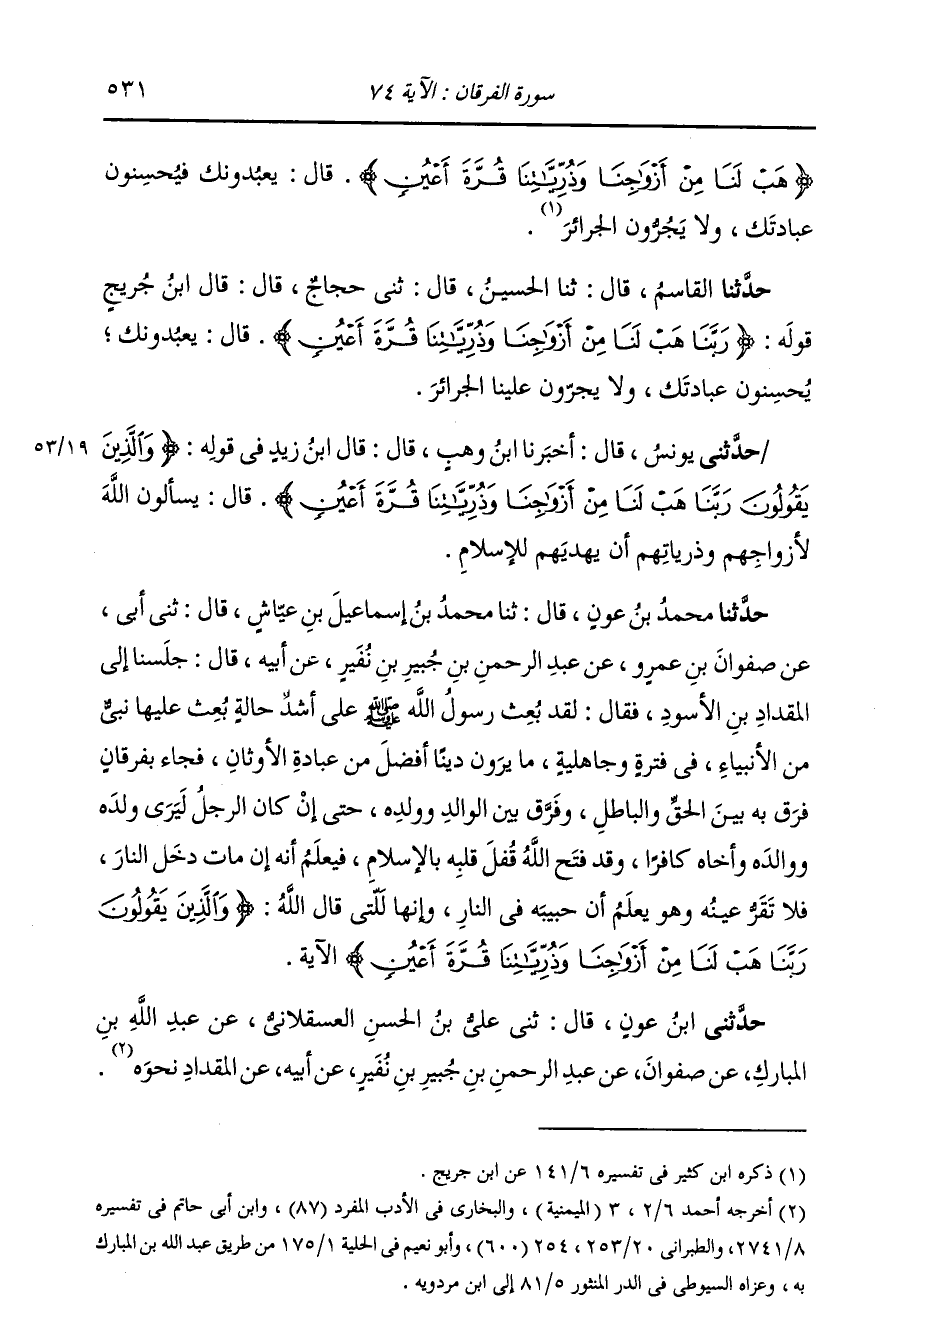 سورة الفرقان : الآية ٧٤ ٥٣١
﴿ هَبْ لَنَا مِنْ أَزْوَٰجِنَا وَذُرِّيَّٰتِنَا قُرَّةَ أَعْيُنٍ ﴾ . قال : يعبُدونك فيُحسِنون
عبادتَك ، ولا يَجُرُّون الجرائرَ (١) .
حدَّثنا القاسمُ ، قال : ثنا الحسينُ ، قال : ثنى حجاجٌ ، قال : قال ابنُ جُريجٍ
قولَه : ﴿ رَبَّنَا هَبْ لَنَا مِنْ أَزْوَٰجِنَا وَذُرِّيَّٰتِنَا قُرَّةَ أَعْيُنٍ ﴾ . قال : يعبُدونك ؛
يُحسِنون عبادتَك ، ولا يجرّون علينا الجرائرَ .
/حدَّثنى يونسُ ، قال : أخبَرنا ابنُ وهبٍ ، قال : قال ابنُ زيدٍ فى قولِه : ﴿ وَٱلَّذِينَ ٥٣/١٩
يَقُولُونَ رَبَّنَا هَبْ لَنَا مِنْ أَزْوَٰجِنَا وَذُرِّيَّٰتِنَا قُرَّةَ أَعْيُنٍ ﴾ . قال : يسألون اللَّهَ
لأزواجِهم وذرياتِهم أن يهديَهم للإسلامِ .
حدَّثنا محمدُ بنُ عونٍ ، قال : ثنا محمدُ بنُ إسماعيلَ بنِ عيّاشٍ ، قال : ثنى أبى ،
عن صفوانَ بنِ عمرٍو ، عن عبدِ الرحمنِ بنِ جُبيرِ بنِ نُفَيرٍ ، عن أبيه ، قال : جلَسنا إلى
المقدادِ بنِ الأسودِ ، فقال : لقد بُعِث رسولُ اللَّه ﷺ على أشدِّ حالةٍ بُعِث عليها نبىٌّ
من الأنبياءِ ، فى فترةٍ وجاهليةٍ ، ما يرَون دينًا أفضلَ من عبادةِ الأوثانِ ، فجاء بفرقانٍ
فرَق به بينَ الحقِّ والباطلِ ، وفَرَّق بين الوالدِ وولدِه ، حتى إنْ كان الرجلُ لَيَرَى ولدَه
ووالدَه وأخاه كافرًا ، وقد فتَح اللَّهُ قُفلَ قلبِه بالإسلامِ ، فيعلَمُ أنه إن مات دخَل النارَ ،
فلا تَقَرُّ عينُه وهو يعلَمُ أن حبيبَه فى النارِ ، وإنها لَلَّتى قال اللَّهُ : ﴿ وَٱلَّذِينَ يَقُولُونَ
رَبَّنَا هَبْ لَنَا مِنْ أَزْوَٰجِنَا وَذُرِّيَّٰتِنَا قُرَّةَ أَعْيُنٍ ﴾ الآية .
حدَّثنى ابنُ عونٍ ، قال : ثنى علىُّ بنُ الحسنِ العسقلانىُّ ، عن عبدِ اللَّهِ بنِ
المباركِ، عن صفوانَ، عن عبدِ الرحمنِ بنِ جُبيرِ بنِ نُفَيرٍ، عن أبيه، عن المقدادِ نحوَه (٢) .
(١) ذكره ابن كثير فى تفسيره ١٤١/٦ عن ابن جريج .
(٢) أخرجه أحمد ٢/٦ ، ٣ (الميمنية) ، والبخارى فى الأدب المفرد (٨٧) ، وابن أبى حاتم فى تفسيره
٢٧٤١/٨، والطبرانى ٢٥٣/٢٠ ، ٢٥٤ (٦٠٠) ، وأبو نعيم فى الحلية ١٧٥/١ من طريق عبد الله بن المبارك
به ، وعزاه السيوطى فى الدر المنثور ٨١/٥ إلى ابن مردويه .